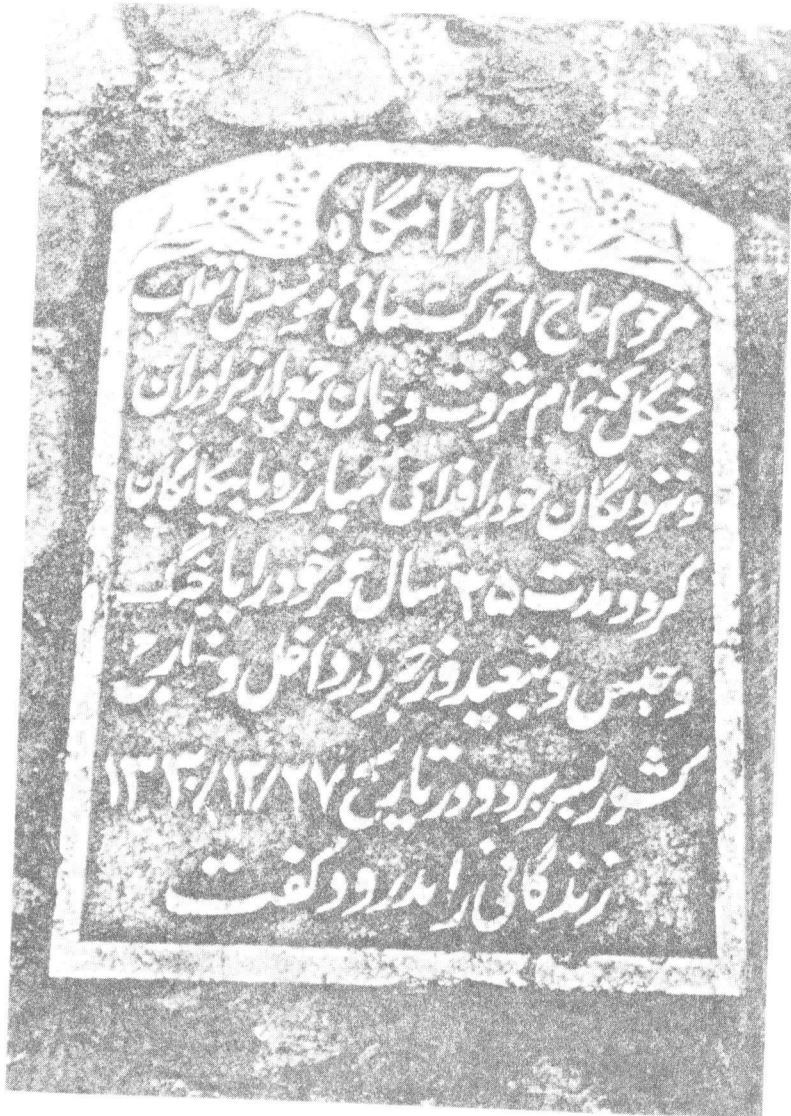 آرامگاه
مرحوم حاج احمد کسمائی مؤسس انقلاب
جنگل که تمام ثروت و جان جمعی از برادران
و نزدیگان خود را فدای مبارزه با بیگانگان
کرد و مدت ۲۵ سال عمر خود را با جنگ
و حبس و تبعید و زجر در داخل و خارج
کشور بسر برد و در تاریخ ۱۳۳۰/۱۲/۲۷
زندگانی را بدرود گفت